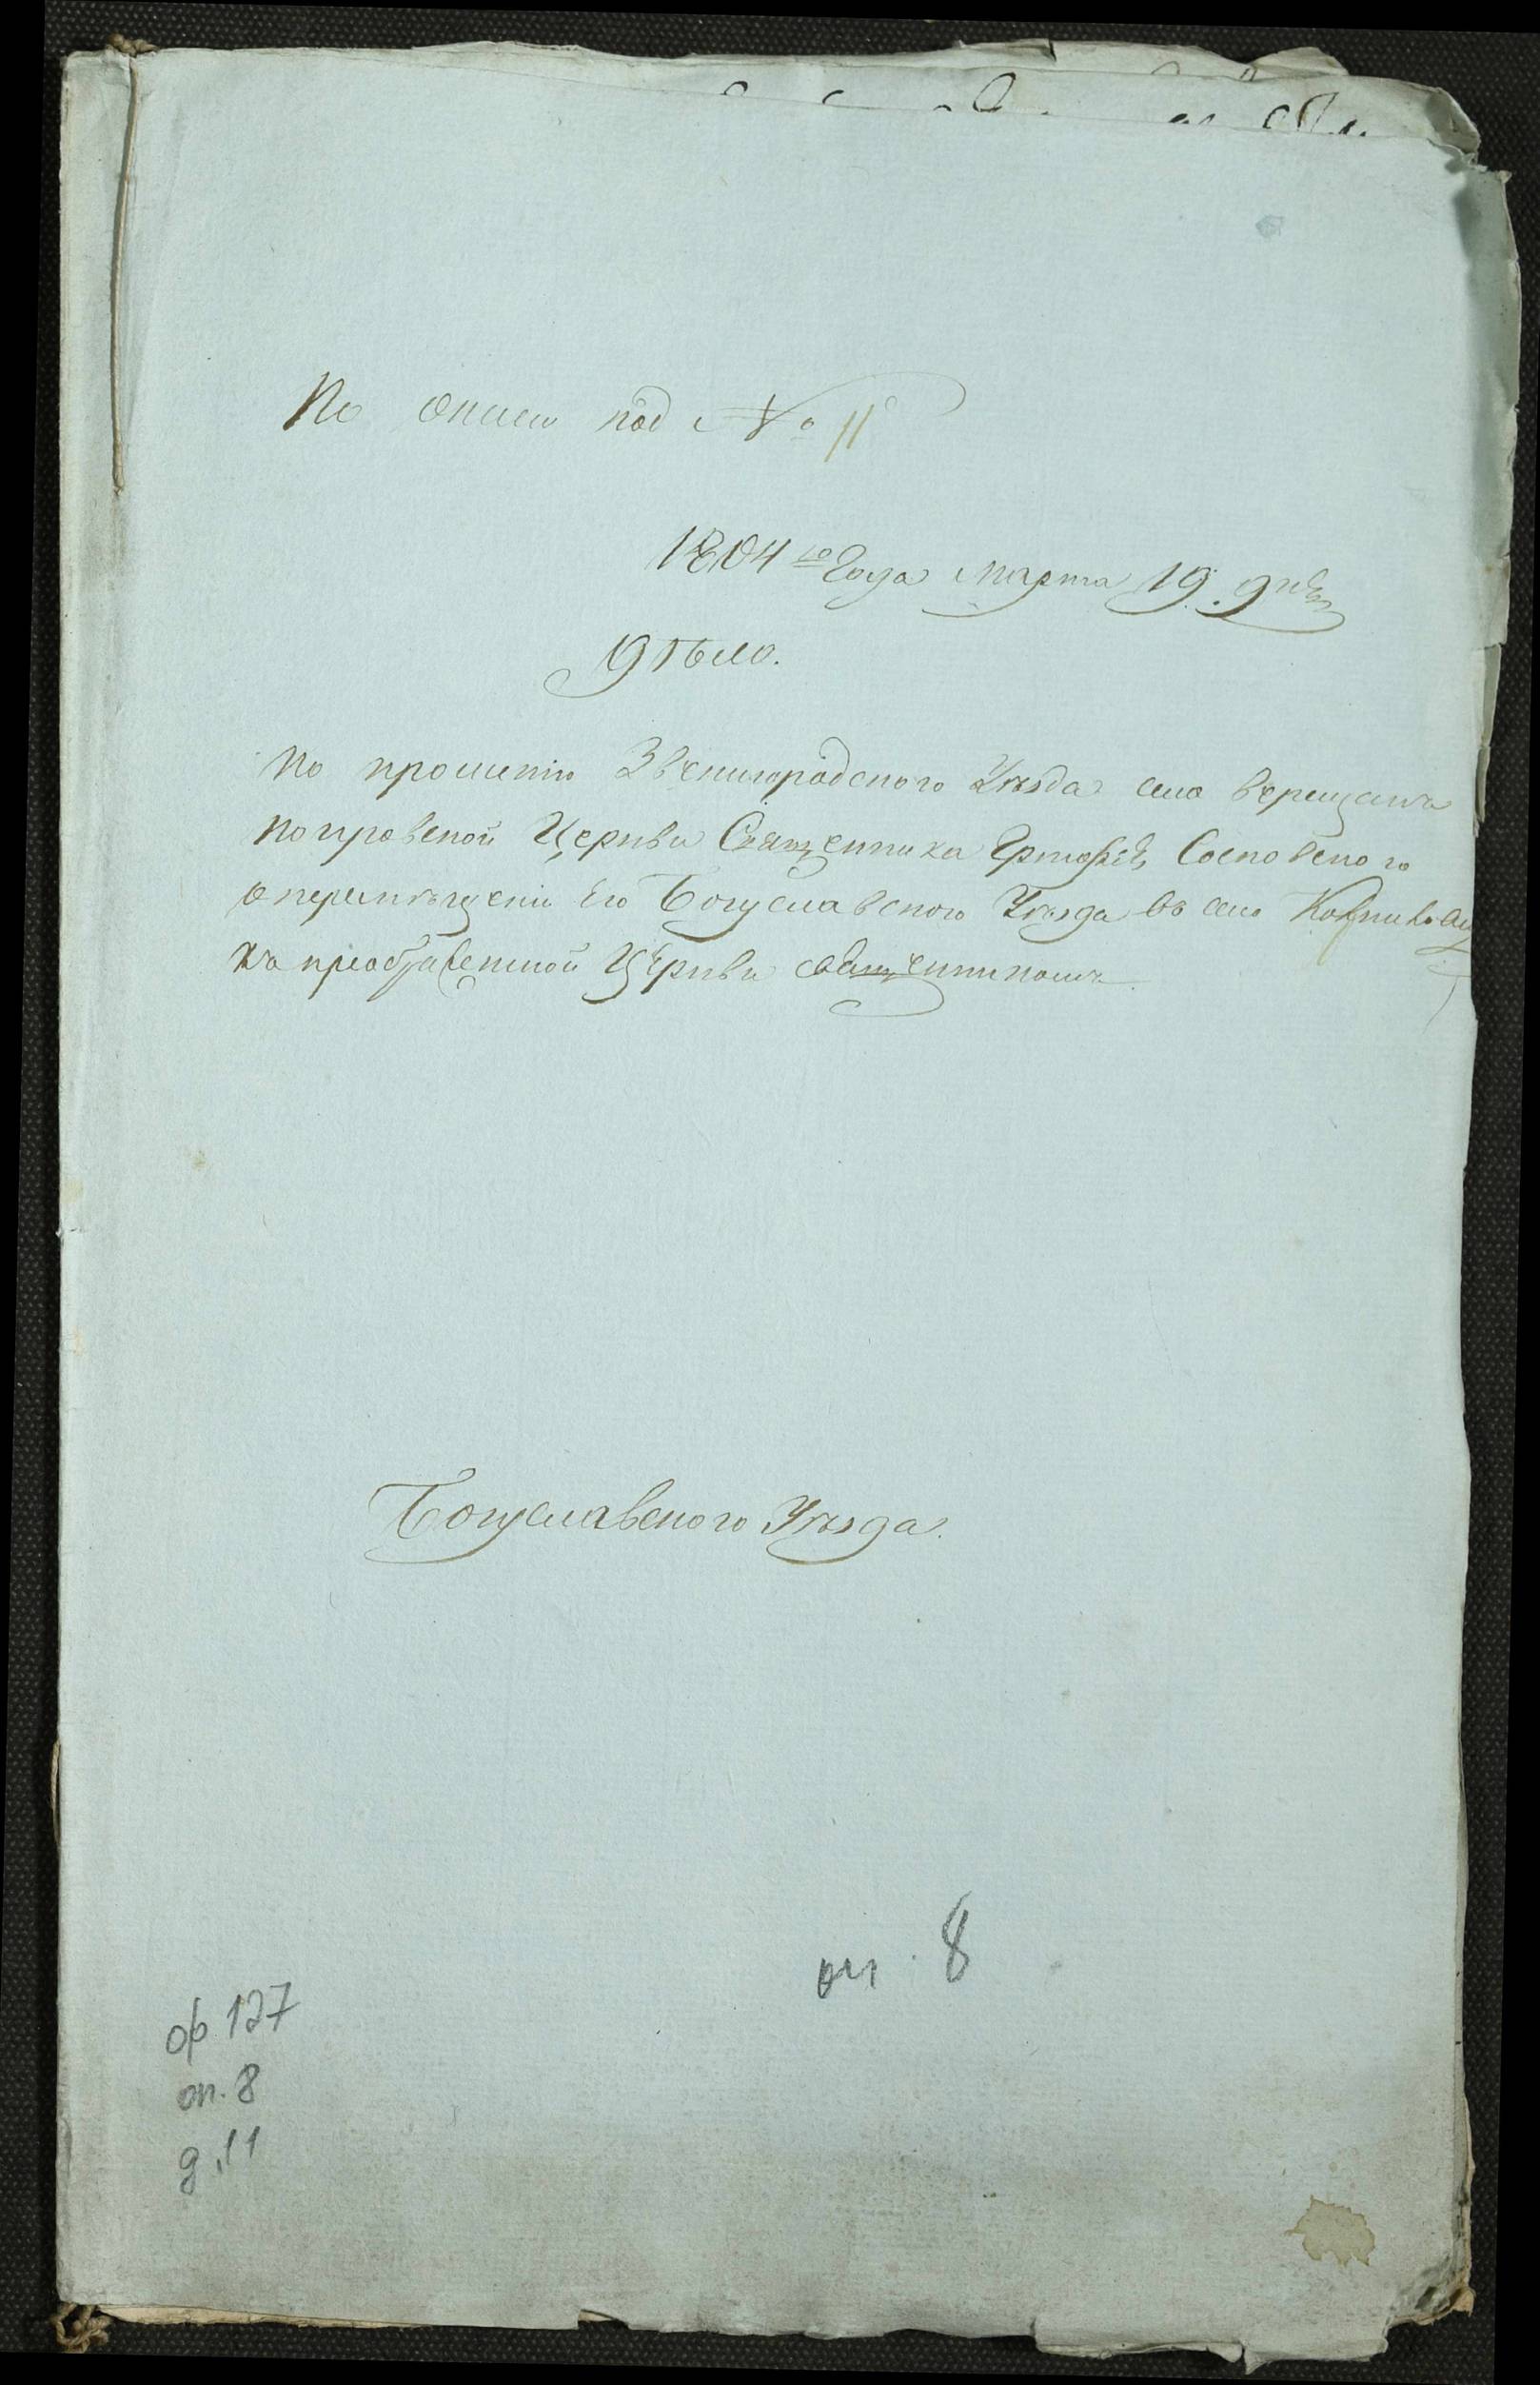 По описи под № 11
1804го Года марта 19. дня
Дѣло.
По прошенію Звенигородского Уѣзда села Верещакъ
Покровской Церкви Священника Сосновского
о перемѣщеніи Его Богуславского Уѣзда въ село
къ преображенской Церкви священникомъ
Богуславского Уѣзда.
оп. 8
ф 127
оп. 8
д. 11